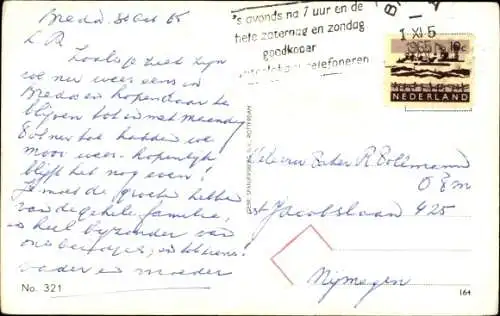 Breda. 31 Oct 65
L. R.
Zoals je ziet zijn
we nu weer eens in
Breda en hopen daar te
blijven tot en met maandag
Tot nu toe hadden we
mooi weer. hopenlijk
blijft het nog even!
Je moet de groeten hebben
van de gehele familie,
en heel byzonder van
ons beidjes, en tot ziens!
vader en moeder
No. 321
's avonds na 7 uur en de
hele zaterdag en zondag
goedkoper
telefoneren
1 XI 5
1965
10c
NEDERLAND
GEBR. SPANJERSBERG N.V., ROTTERDAM
Weleerw. Pater R. Bollmann
O F m
St Jacobslaan 425
Nijmegen
164